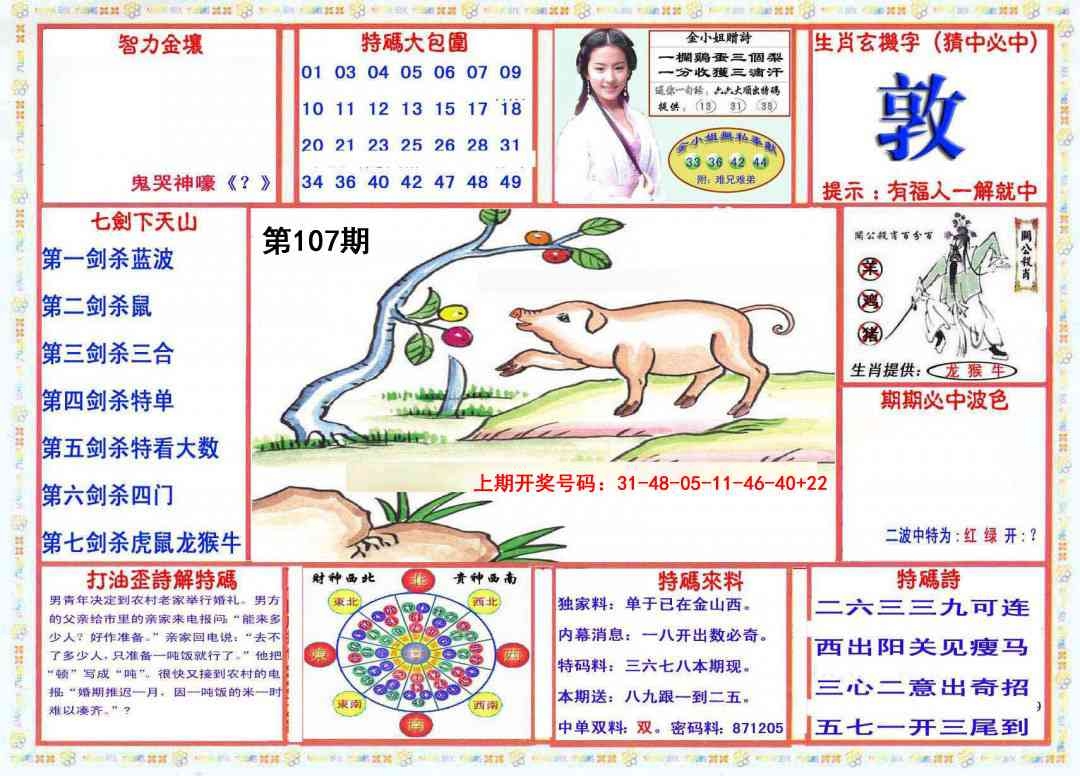 智力金壤
鬼哭神嚎《？》
特碼大包圍
01 03 04 05 06 07 09
10 11 12 13 15 17 18
20 21 23 25 26 28 31
34 36 40 42 47 48 49
金小姐赠詩
一欄鷄蛋三個梨
一分收獲三滴汗
送你一句話：六六大順出特碼
提供：13 31 38
金小姐無私奉献
33 36 42 44
附：难兄难弟
生肖玄機字（猜中必中）
敦
提示：有福人一解就中
七劍下天山
第一剑杀蓝波
第二剑杀鼠
第三剑杀三合
第四剑杀特单
第五剑杀特看大数
第六剑杀四门
第七剑杀虎鼠龙猴牛
第107期
上期开奖号码：31-48-05-11-46-40+22
関公殺肖百分百
関公殺肖
羊
鸡
猪
生肖提供：龙 猴 牛
期期必中波色
二波中特为：红 绿 开：？
打油歪詩解特碼
男青年决定到农村老家举行婚礼。男方
的父亲给市里的亲家来电报问：“能来多
少人？好作准备。”亲家回电说：“去不
了多少人，只准备一吨饭就行了。”他把
“顿”写成“吨”。很快又接到农村的电
报：“婚期推迟一月，因一吨饭的米一时
难以凑齐。”？
财神西北
貴神西南
北
東北
西北
東
西
東南
西南
南
特碼來料
独家料：单于已在金山西。
内幕消息：一八开出数必奇。
特码料：三六七八本期现。
本期送：八九跟一到二五。
中单双料：双。密码料：871205
特碼詩
二六三三九可连
西出阳关见瘦马
三心二意出奇招
9
五七一开三尾到